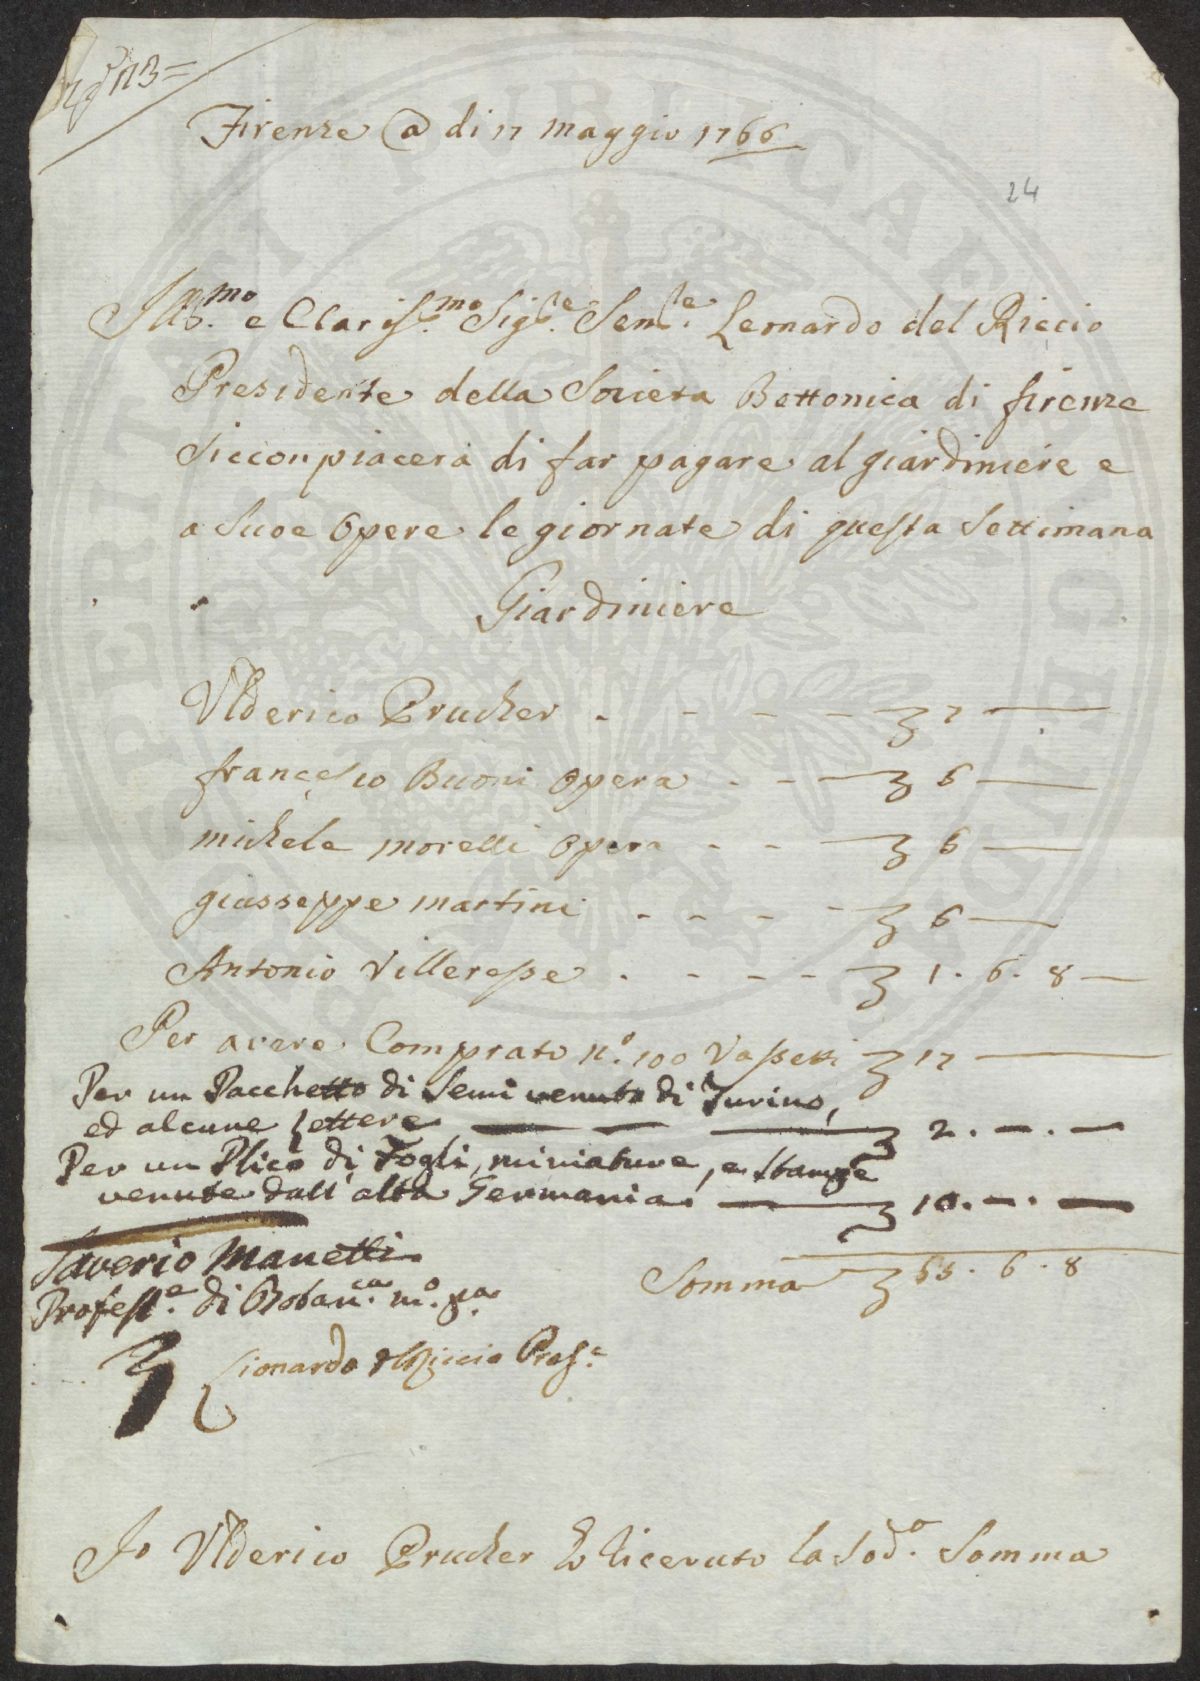 n° 113=
Firenze @ di 17 maggio 1766
24
Ill.mo e Clariss.mo Sig.re Sen.re Leonardo del Riccio
Presidente della Societa Bottonica di firenze
Siccompiacera di far pagare al giardiniere e
a Suoe Opere le giornate di questa Settimana
Giardiniere
Ulderico Prucker . - - - - 7
francesco Buoni Opera - - 6
michele morelli Opera - - 6
giusseppe martini - - - - 6
Antonio Villeresse . - - - - 1. 6. 8
Per avere Comprato n.o 100 Vassetti 17
Per un Pacchetto di Semi venuto di Turino,
ed alcune lettere 2. - . -
Per un Plico di Fogli, miniature, e stampe
venute dall'alta Germania. 10. - . -
Somma 55. 6. 8
Saverio Manetti
Profess.e di Botan.ca m.o p.a
Lionardo del Riccio Pres.e
Io Ulderico Prucker ho riceuuto la Sod.a Somma